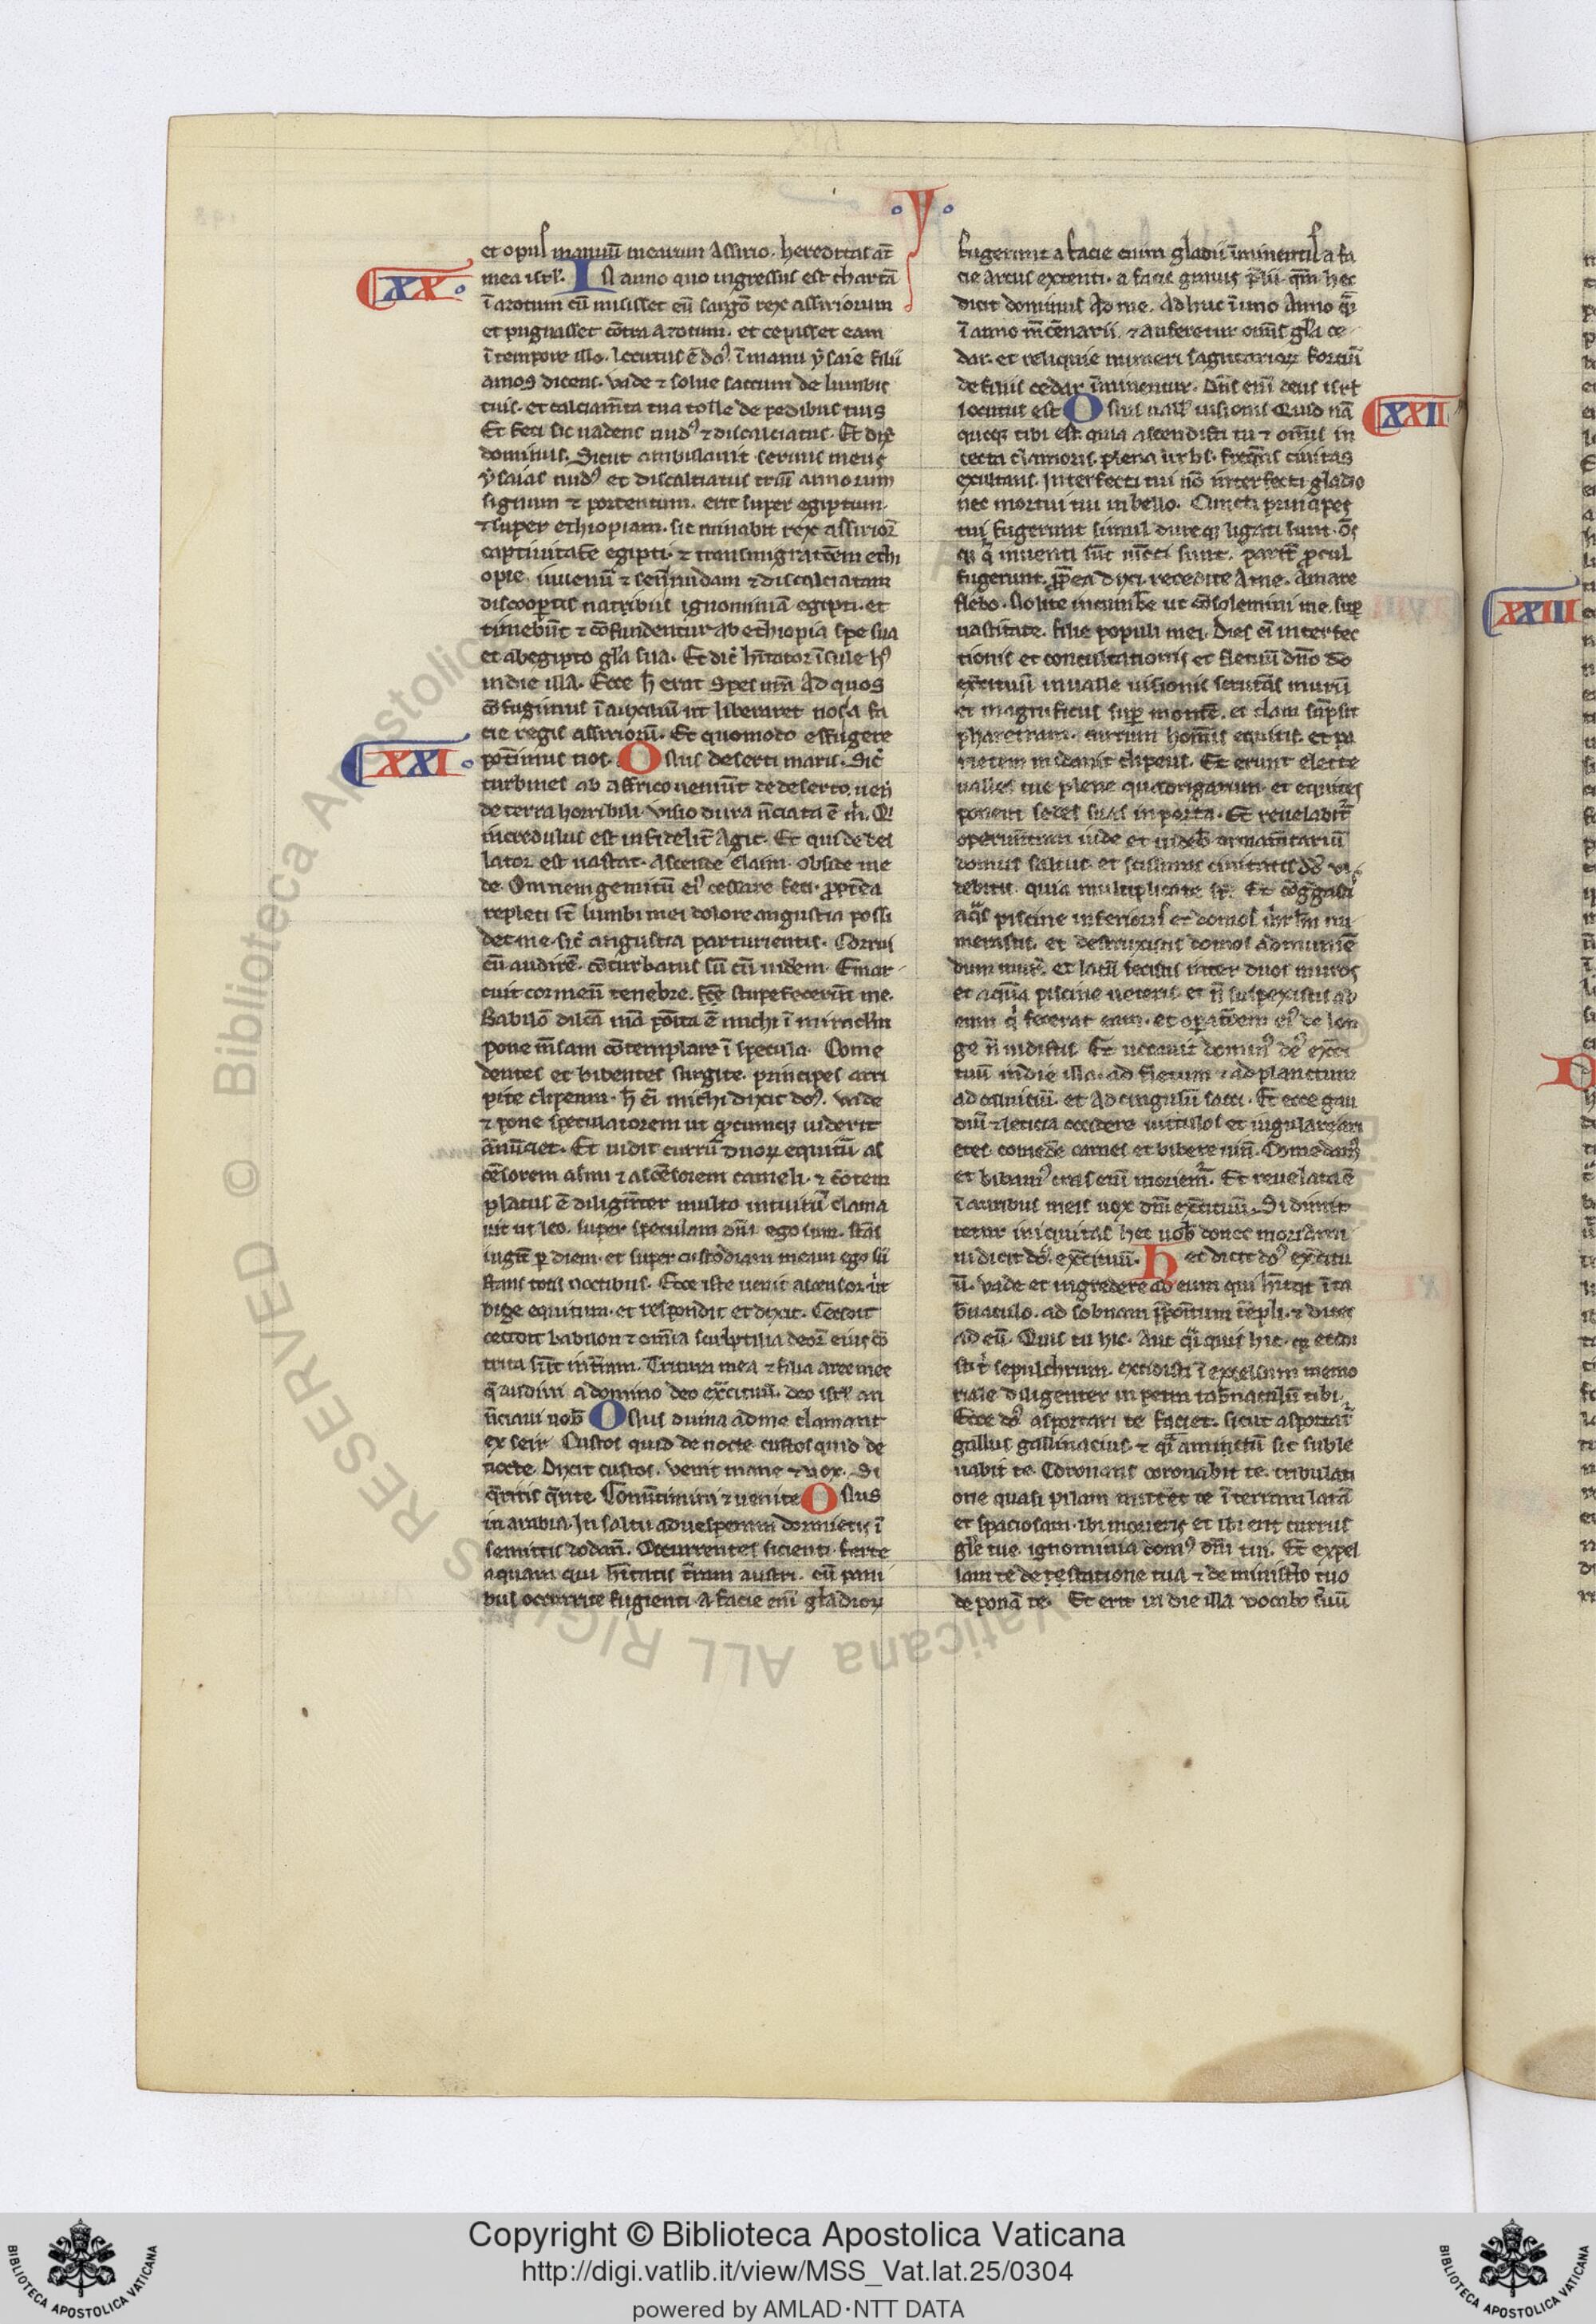 .y.
et opus manuū mearum Assirio. hereditas aūt
XX.
mea isrl'. In anno quo ingressus est thartā
ī azotum cū misisset eū sargō rex assiriorum
et pugnasset cōtra azotum. et cepisset eam
ī tempore illo. locutus ē dōs ī manu ysaie filii
amos dicens. vade ⁊ solue saccum de lumbis
tuis. et calciam̄ta tua tolle de pedibus tuis
Et feci sic uadens nudꝰ ⁊ discalciatus. Et dix̄
dominus. Sicut ambulauit seruus meus
ysaias nudꝰ et discalciatus triū annorum
signum ⁊ portentum. erit super egiptum.
⁊ super ethiopiam. sic minabit rex assirioꝝ
captiuitatē egipti. ⁊ transmigratōem ethi
opie. iuuenū ⁊ senū nudam ⁊ discalciatam
discoopertis natibus ignominiā egipti. et
timebūt ⁊ cōfundentur ab ethiopia spe sua
et ab egipto gl'a sua. Et dic̄ h̄itator īsule hꝰ
in die illa. Ecce h̄ erat spes nr̄a Ad quos
cōfugimus ī auxiliū ut liberaret nos a fa
cie regis assiriorū. Et quomodo effugere
XXI.
pot̄imus nos. Onus deserti maris. Sic̄
turbines ab affrico ueniūt de deserto. ueñ
de terra horribili. visio dura n̄ciata ē m̄. Qͥ
incredulus est infidelit̄ Agit. Et qui depel
lator est uastat. Ascende elam. obside me
de. Omnem gemitū eiꝰ cessare feci. ꝓpt̄ea
repleti st̄ lumbi mei dolore angustia possi
det me. sic̄ angustia parturientis. Corrui
cū audirē. cōturbatus sū cū uiderem. Emar
cuit cor meū tenebre. stupefecerūt me.
Babilō dilc̄a m̄a ī miraclm
pone m̄sam cōtemplare ī specula. Come
dentes et bibentes surgite. principes arri
pite clipeum. h̄ ei michi dixit dōs. vade
⁊ pone speculatorem ut q̄cumqꝫ uiderit
ānūtiet. Et uidit currū duoꝝ equitū as
cēsorem asini ⁊ ascēsorem cameli. ⁊ cōtem
platus ē diligēter multo intuitu. Clama
uit ut leo. super speculam dn̄i ego sum. stās
iugit̄ ꝑ diem. et super custodiam meam ego sū
stans totis noctibus. Ecce iste uenit ascensor uir
bige equitum. et respondit et dixit. Cecidit
cecidit babilon ⁊ omīa sculptilia deoꝝ eius cō
trita sūt in t̄ram. Tritura mea ⁊ filia aree mee
q̄ audiui a domino deo exc̄ituū. deo isrl' an
n̄ciaui uob̄ Onus duma ad me clamant
ex seir Custos quid de nocte. custos quid de
nocte. Dixit custos. venit mane ⁊ nox. Si
q̄ritis q̄rite. Conūtimini ⁊ uenite Onus
in arabia. In saltu ad uesperam dormietis ī
semitis dodañ. Occurrentes sicienti. ferte
aquam qui h̄itatis t̄ram austri. cū pani
bus occurrite fugienti. A facie enī gladioꝝ
fugerunt a facie enim gladii īminentis a fa
cie arcus extenti. a facie grauis p̄lii. qm̄ hec
dicit dominus ad me. Adhuc ī uno anno q̄
ī anno m̄cēnarii. ⁊ auferetur omīs gl'a ce
dar. et reliquie numeri sagittarioꝝ fortiū
de filiis cedar īminentur. Dn̄s enī deus isrl'
XXII
locutus est Onus uall' uisionis Quid nā
quoqꝫ tibi est. quia ascendisti tu ⁊ omīs in
tecta clamoris. plena urbs. freq̄ns ciuitas
exultans. Interfecti tui nō interfecti gladio
nec mortui tui in bello. Cuncti principes
tui fugerunt simul. dureqꝫ ligati sunt. Ōs
qͥ inuenti sūt uīcti sunt. parit̄ procul
fugerunt. ꝓpt̄ea dixi. recedite a me. Amare
flebo. Nolite incumbe ut cōsolemini me. suꝑ
uastitate. filie populi mei. Dies ei interfec
tionis et conculcationis et fletuū dn̄o deo
exc̄ituū in ualle uisionis scrutās murū
et magnificus suꝑ montē. et elam sūpsit
pharetram. currum hominis equitis. et pa
rietem nudauit clipeus. Et erunt electe
ualles tue plene quadrigarum. et equites
ponent sedes suas in porta. Et reuelabit̄
operim̄tum iude et uideb̄ armam̄tariū
domus saltus. et scissuras ciuitatis dd' vi
debitis. quia multiplicate st̄. Et cōgregasti
aq̄s piscine inferioris et domos ihrlm nu
merastis. et destruxistis domos ad munien
dum mur̄. et lacū fecistis inter duos muros
et aquā piscine ueteris. et n̄ suspexistis ad
eum qͥ fecerat eam. et operatōem eiꝰ de lon
ge n̄ uidistis. Et uocauit dominꝰ deꝰ exc̄i
tuū in die illa. ad fletum ⁊ ad planctum
ad caluiciū. et ad cingulū sacci. Et ecce gau
diū ⁊ leticia occidere uitulos et iugulare ari
etes. comedē carnes et bibere uinū. Comedamꝰ
et bibamꝰ cras enī moriem̄. Et reuelata ē
ī auribus meis uox dn̄i exc̄ituū. Si dimit
tetur iniquitas hec uob̄ donec moriami
ni dicit dōs exc̄ituū. Hec dicit dōs exc̄itu
ū. vade et ingredere ad eum qui h̄itat ī ta
b̄naculo. ad sobnam p̄pōitum tēpli. ⁊ dices
ad eū. Quis tu hic. Aut q̄i quis hic. qꝫ excidi
sti t̄ sepulchrum. excidisti ī excelsum memo
riale diligenter in petra tab̄naculū tibi.
Ecce dōs asportari te faciet. sicut asportat̄
gallus gallinacius. ⁊ qͥ amictū sic suble
uabit te. Coronans coronabit te tribulati
one. quasi pilam mittet te ī terram latā
et spaciosam. ibi morieris et ibi erit currus
gl'e tue. ignominia domꝰ dn̄i tui. Et expel
lam te de statione tua ⁊ de ministio tuo
deponā te. Et erit in die illa vocabo suū
XXIII
Biblioteca Apostolica Vaticana ALL RIGHTS RESERVED ©
BIBLIOTECA APOSTOLICA VATICANA
Copyright © Biblioteca Apostolica Vaticana
http://digi.vatlib.it/view/MSS_Vat.lat.25/0304
powered by AMLAD·NTT DATA
BIBLIOTECA APOSTOLICA VATICANA